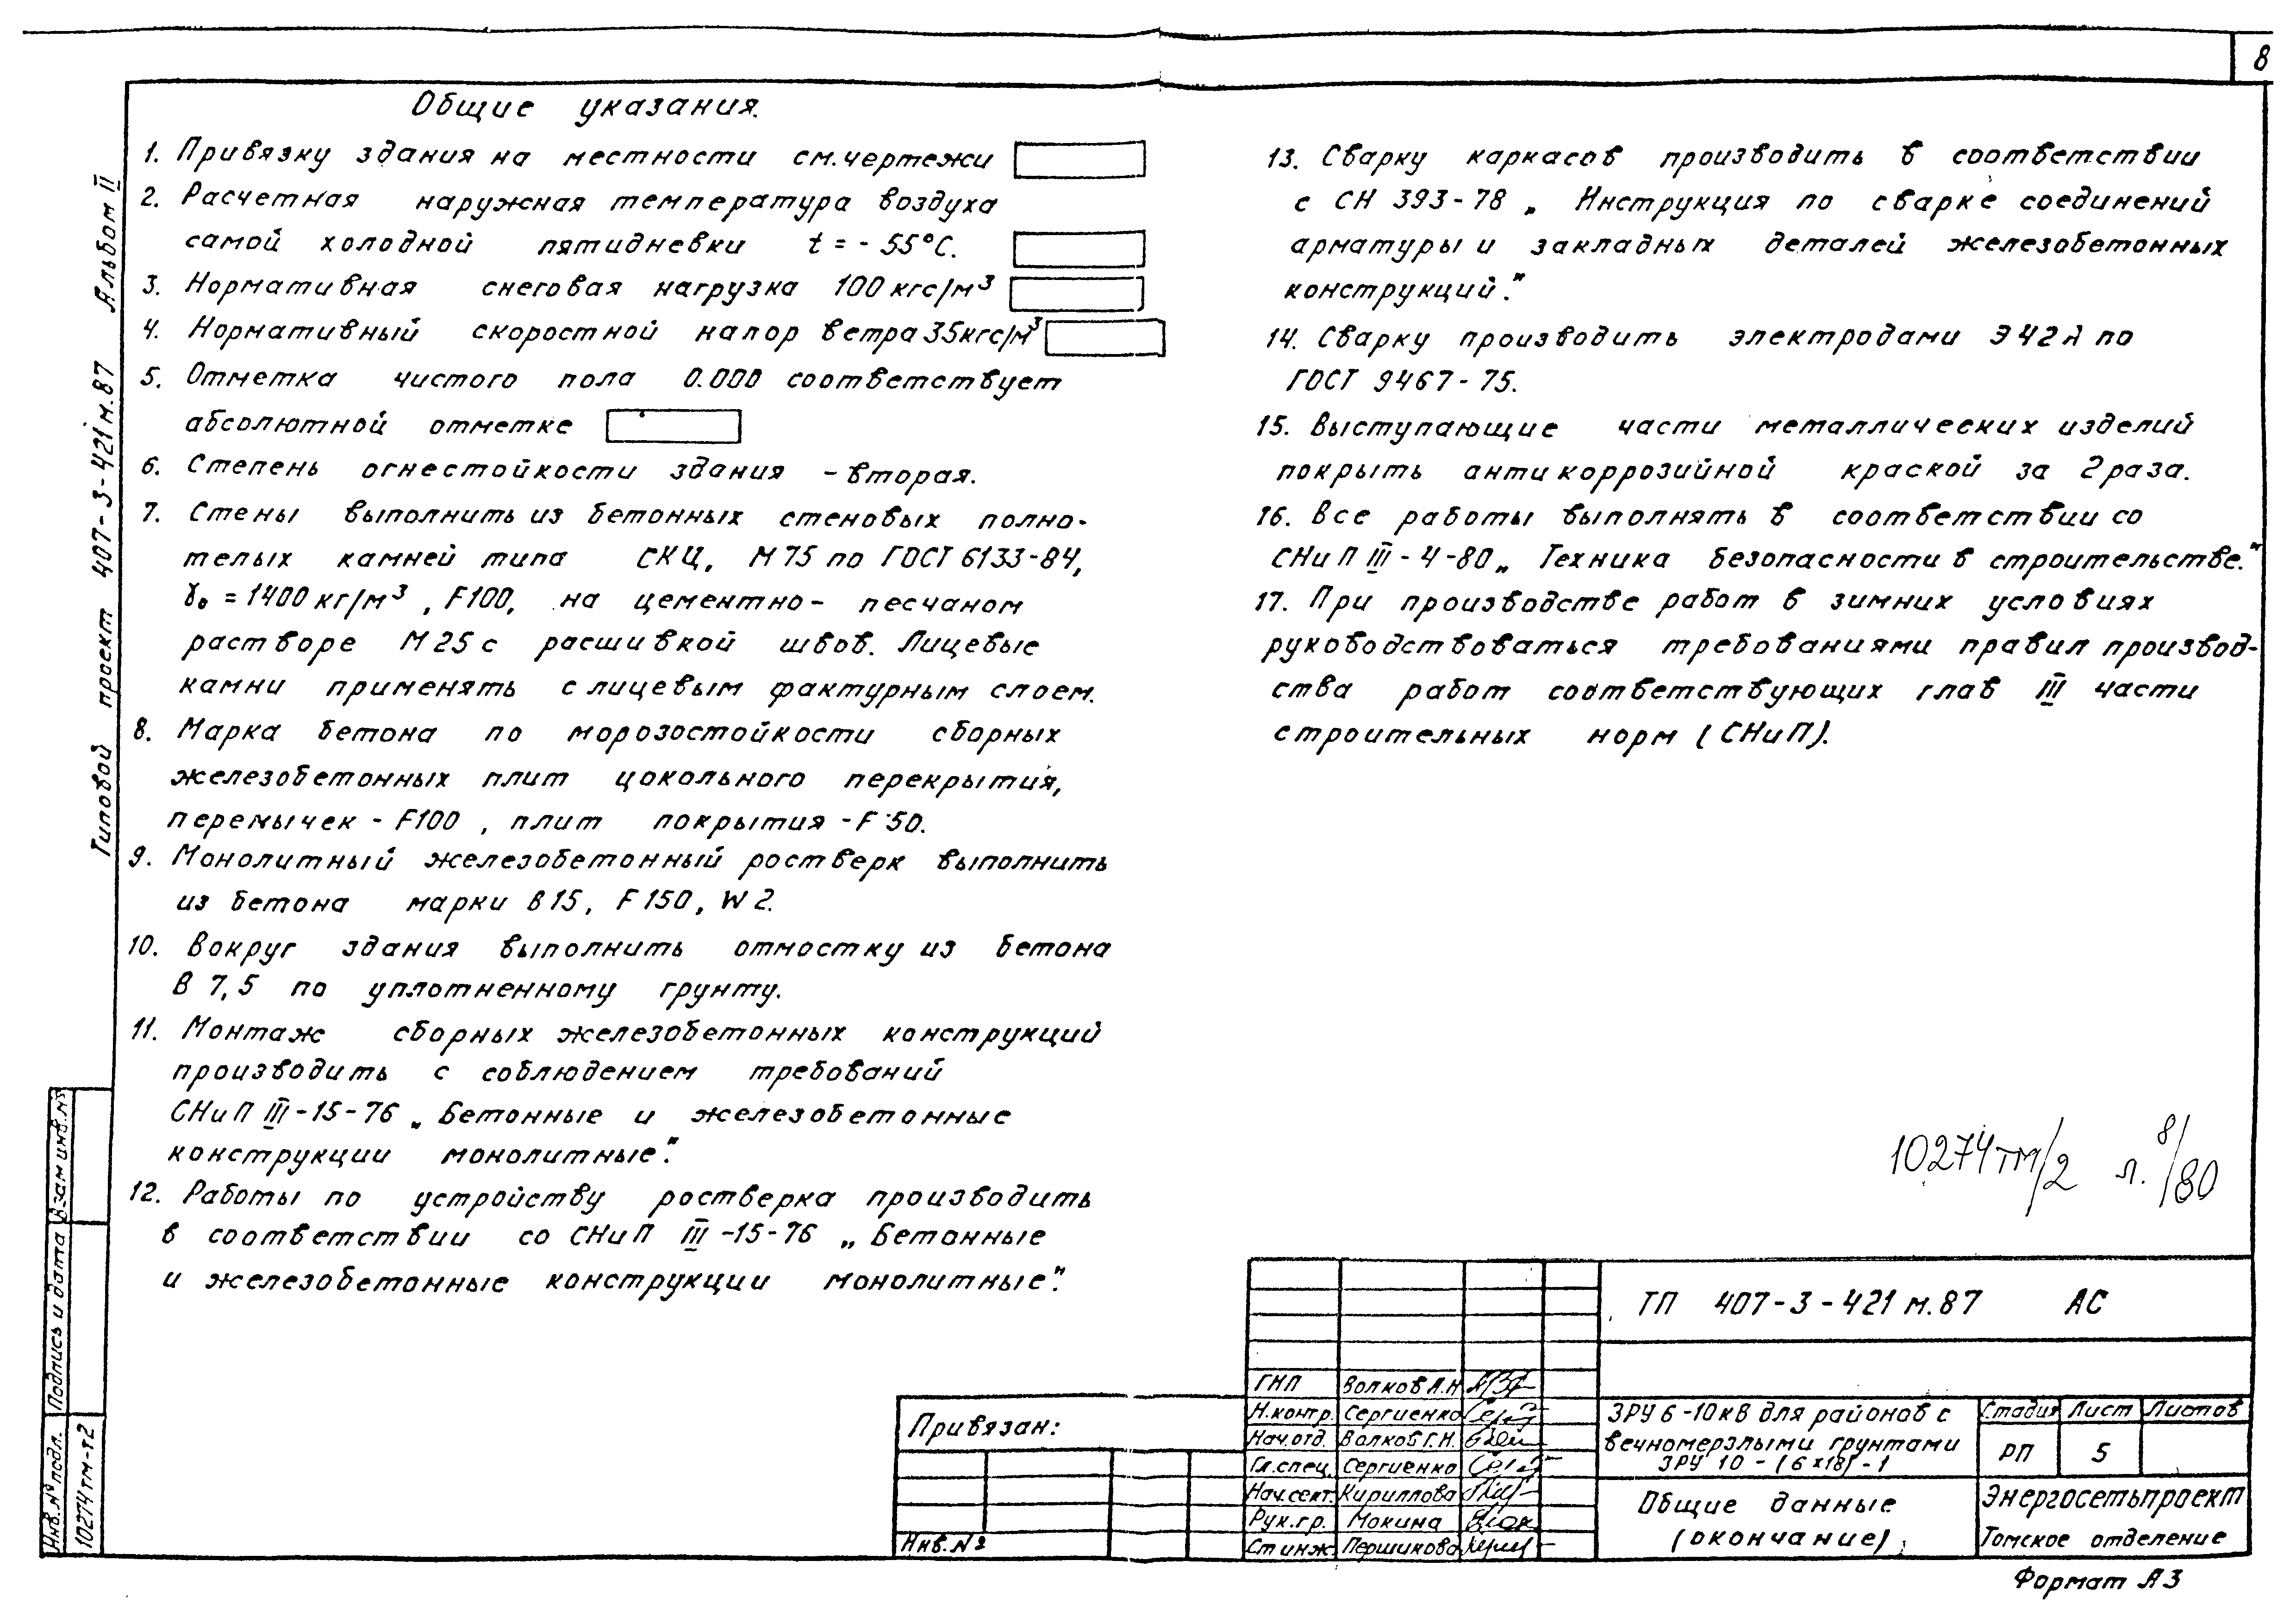 8
Общие указания.
1. Привязку здания на местности см. чертежи
2. Расчетная наружная температура воздуха
самой холодной пятидневки t = - 55°С.
3. Нормативная снеговая нагрузка 100 кгс/м³
4. Нормативный скоростной напор ветра 35кгс/м³
5. Отметка чистого пола 0.000 соответствует
абсолютной отметке
6. Степень огнестойкости здания - вторая.
7. Стены выполнить из бетонных стеновых полно-
телых камней типа СКЦ, М75 по ГОСТ 6133-84,
γ₀ = 1400 кг/м³, F100, на цементно- песчаном
растворе М 25 с расшивкой швов. Лицевые
камни применять с лицевым фактурным слоем.
8. Марка бетона по морозостойкости сборных
железобетонных плит цокольного перекрытия,
перемычек - F100, плит покрытия - F 50.
9. Монолитный железобетонный ростверк выполнить
из бетона марки В15, F150, W2.
10. Вокруг здания выполнить отмостку из бетона
В 7,5 по уплотненному грунту.
11. Монтаж сборных железобетонных конструкций
производить с соблюдением требований
СНиП III-15-76 „Бетонные и железобетонные
конструкции монолитные".
12. Работы по устройству ростверка производить
в соответствии со СНиП III -15-76 „Бетонные
и железобетонные конструкции монолитные".
13. Сварку каркасов производить в соответствии
с СН 393-78 „Инструкция по сварке соединений
арматуры и закладных деталей железобетонных
конструкций."
14. Сварку производить электродами Э42А по
ГОСТ 9467-75.
15. Выступающие части металлических изделий
покрыть антикоррозийной краской за 2 раза.
16. Все работы выполнять в соответствии со
СНиП III-4-80 „Техника безопасности в строительстве."
17. При производстве работ в зимних условиях
руководствоваться требованиями правил производ-
ства работ соответствующих глав III части
строительных норм (СНиП).
Типовой проект 407-3-421м.87 Альбом II
Взам инв.№
Подпись и дата
Инв.№ подл.
10274тм-т2
10274тм/2 л. 8/80
ТП 407-3-421м.87 АС
Привязан:
Инв.№
ГИП Волков А.Н
Н.контр. Сергиенко
Нач.отд. Волков Г.Н.
Гл.спец. Сергиенко
Нач.сект. Кириллова
Рук.гр. Мокина
Ст инж. Першикова
ЗРУ 6-10кВ для районов с
вечномерзлыми грунтами
ЗРУ 10-(6х18)-1
Стадия Лист Листов
РП 5
Общие данные
(окончание)
Энергосетьпроект
Томское отделение
Формат А3